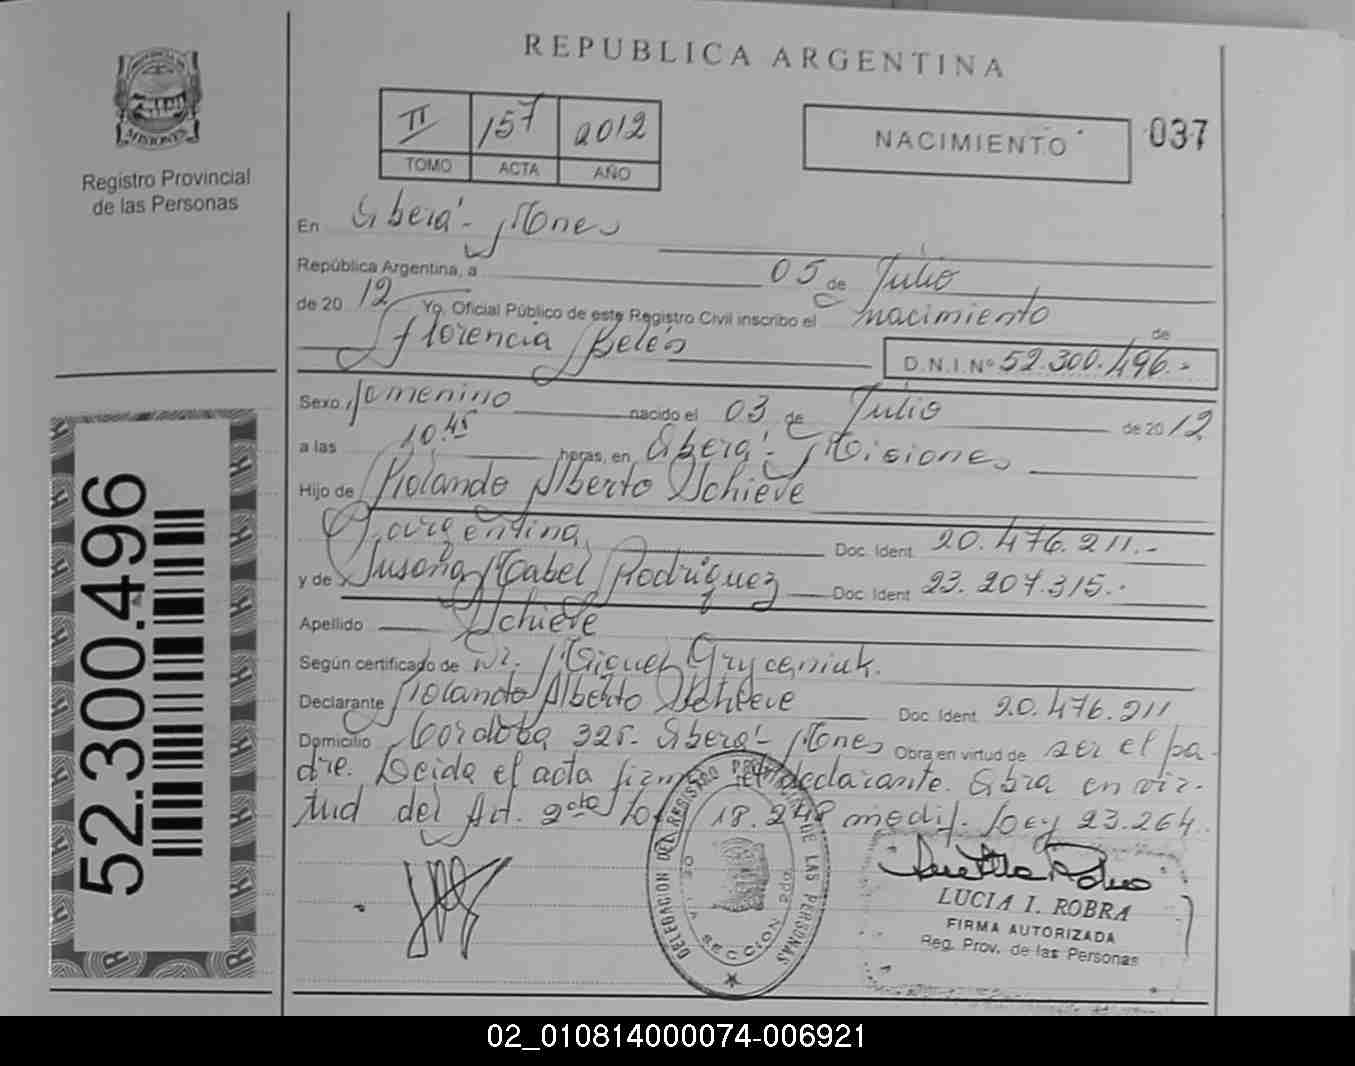 REPUBLICA ARGENTINA
MISIONES
Registro Provincial
de las Personas
II 157 2012
TOMO ACTA AÑO
NACIMIENTO
037
En Oberá - Mnes
República Argentina, a 05 de Julio
de 2012 Yo, Oficial Público de este Registro Civil inscribo el nacimiento de
Florencia Belén D.N.I. Nº 52.300.496.-
Sexo femenino nacido el 03 de Julio de 2012
a las 10.45 horas, en Oberá - Misiones
Hijo de Rolando Alberto Schieve
argentina Doc. Ident. 20.476.211.-
y de Susana Isabel Rodriguez Doc. Ident 23.207.315.-
Apellido Schieve
Según certificado de Dr. Miguel Gryceniuk.
Declarante Rolando Alberto Schieve Doc. Ident. 20.476.211
Domicilio Cordoba 325- Oberá - Mnes Obra en virtud de ser el pa-
dre. Leida el acta firma el declarante. Obra en vir-
tud del Art. 2cto Ley 18.248 modif. Ley 23.264.
52.300.496
DELEGACION DEL REGISTRO PROVINCIAL DE LAS PERSONAS
SECCION
LUCIA I. ROBRA
FIRMA AUTORIZADA
Reg. Prov. de las Personas
02_010814000074-006921